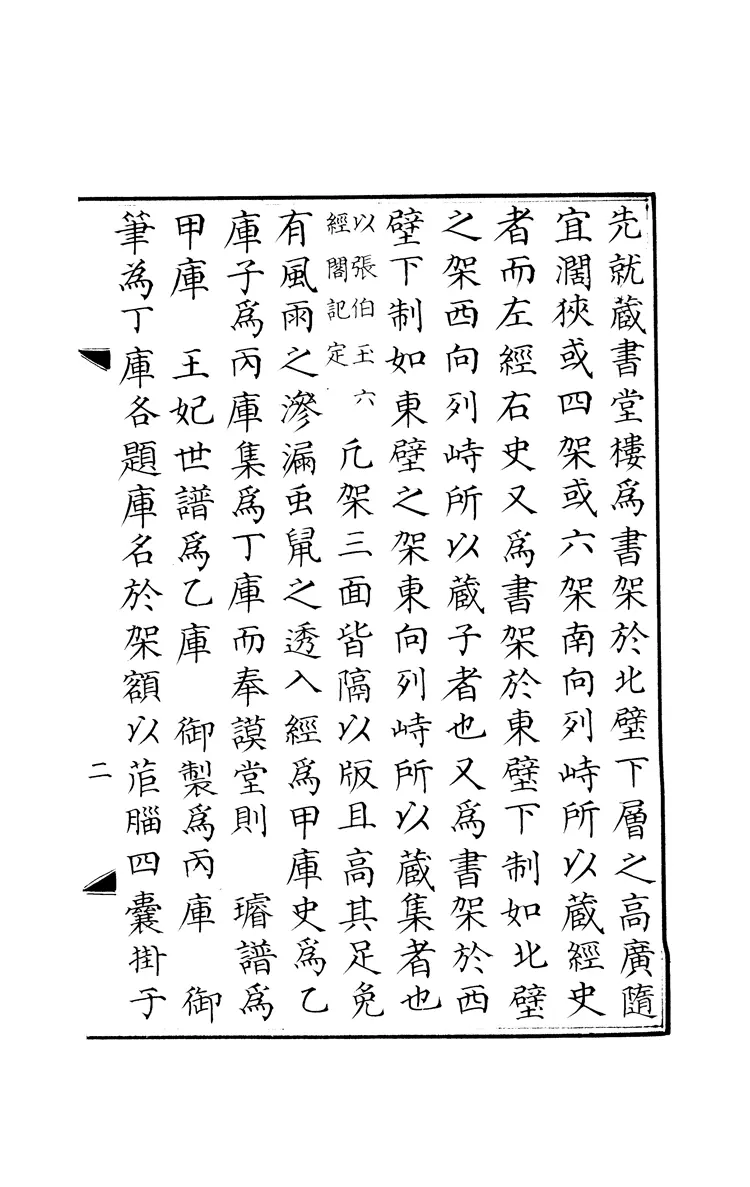 先就蔵書堂樓爲書架於北壁下層之高廣隨
宜濶狹或四架或六架南向列峙所以蔵經史
者而左經右史又爲書架於東壁下制如北壁
之架西向列峙所以蔵子者也又爲書架於西
壁下制如東壁之架東向列峙所以蔵集者也
以張伯玉六
經閣記定
凡架三面皆隔以版且高其足免
有風雨之滲漏虫鼠之透入經爲甲庫史爲乙
庫子爲丙庫集爲丁庫而奉謨堂則 璿譜爲
甲庫 王妃世譜爲乙庫 御製爲丙庫 御
筆為丁庫各題庫名於架額以萢腦四囊掛于
二